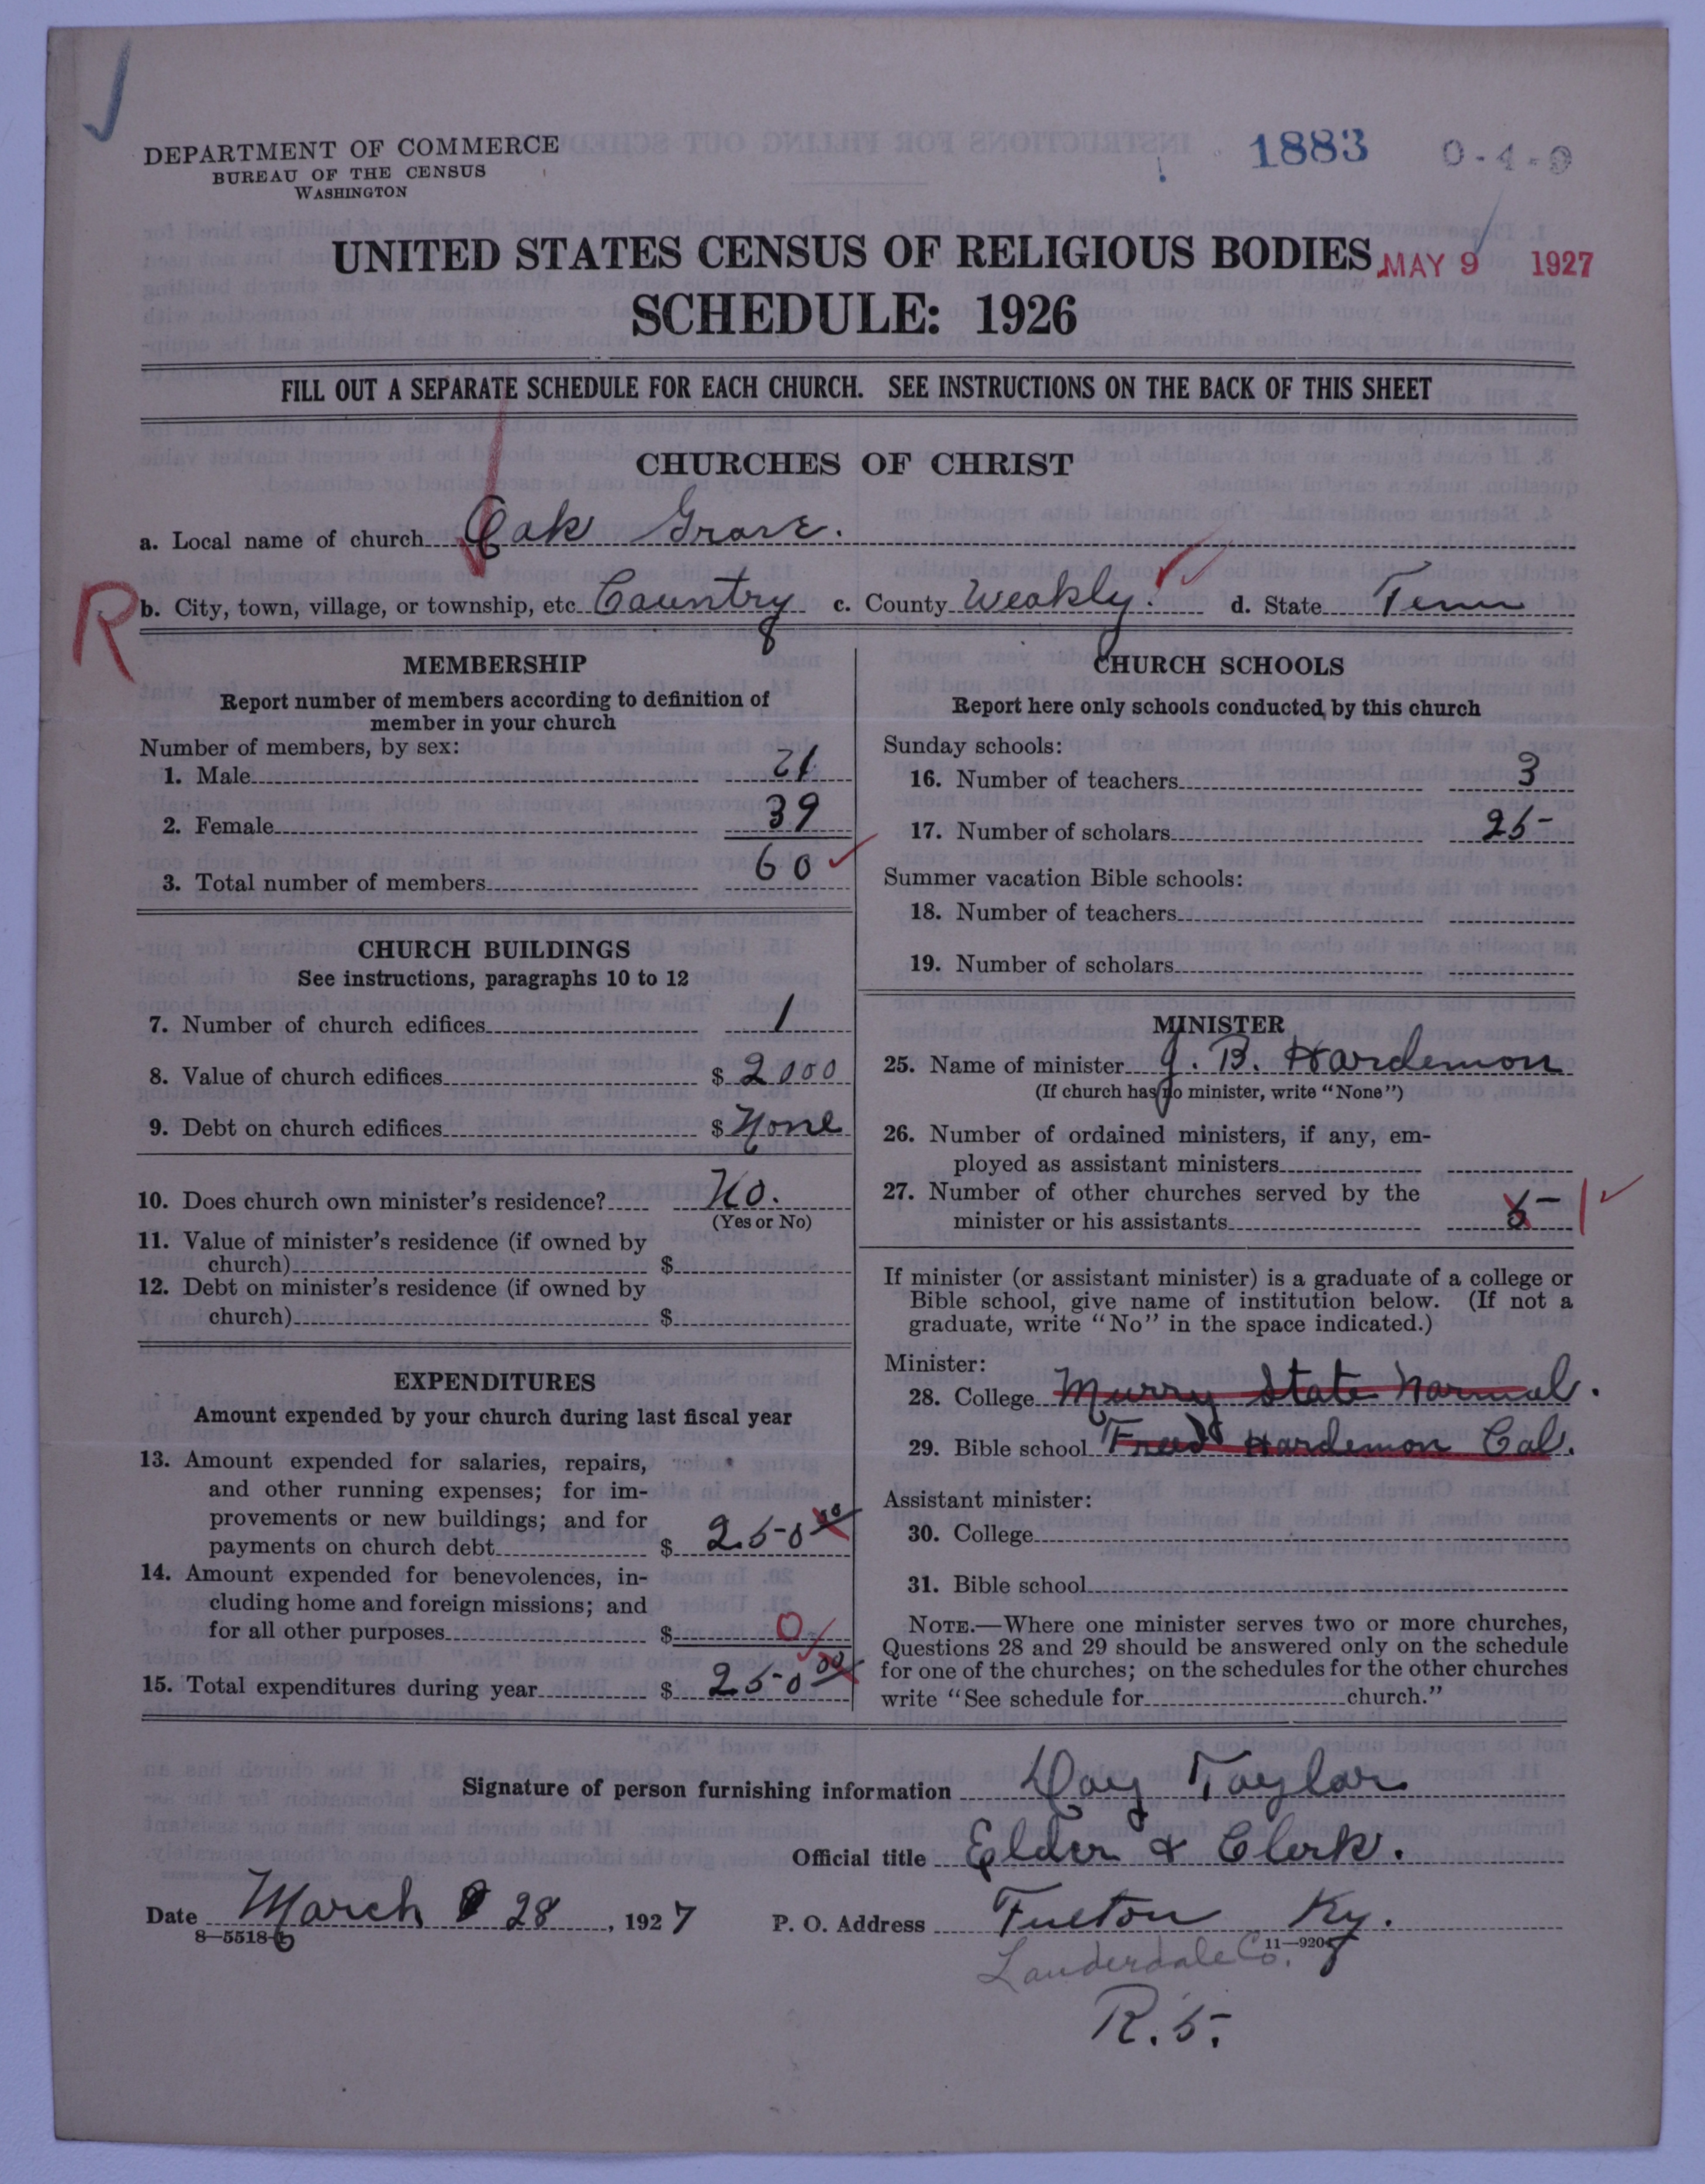 DEPARTMENT OF COMMERCE
BUREAU OF THE CENSUS
WASHINGTON
1883 0-4-9
UNITED STATES CENSUS OF RELIGIOUS BODIES
MAY 9 1927
SCHEDULE: 1926
FILL OUT A SEPARATE SCHEDULE FOR EACH CHURCH. SEE INSTRUCTIONS ON THE BACK OF THIS SHEET
CHURCHES OF CHRIST
a. Local name of church Oak Grove.
R
b. City, town, village, or township, etc Country c. County Weakly. d. State Tenn
MEMBERSHIP
Report number of members according to definition of
member in your church
Number of members, by sex:
1. Male 21
2. Female 39
3. Total number of members 60
CHURCH BUILDINGS
See instructions, paragraphs 10 to 12
7. Number of church edifices 1
8. Value of church edifices $ 2000
9. Debt on church edifices $ None
10. Does church own minister's residence? No.
(Yes or No)
11. Value of minister's residence (if owned by
church) $
12. Debt on minister's residence (if owned by
church) $
EXPENDITURES
Amount expended by your church during last fiscal year
13. Amount expended for salaries, repairs,
and other running expenses; for im-
provements or new buildings; and for
payments on church debt $ 250 00
14. Amount expended for benevolences, in-
cluding home and foreign missions; and
for all other purposes $ 0
15. Total expenditures during year $ 250 00
CHURCH SCHOOLS
Report here only schools conducted by this church
Sunday schools:
16. Number of teachers 3
17. Number of scholars 25
Summer vacation Bible schools:
18. Number of teachers
19. Number of scholars
MINISTER
25. Name of minister J. B. Hardemon
(If church has no minister, write "None")
26. Number of ordained ministers, if any, em-
ployed as assistant ministers
27. Number of other churches served by the
minister or his assistants 5 1
If minister (or assistant minister) is a graduate of a college or
Bible school, give name of institution below. (If not a
graduate, write "No" in the space indicated.)
Minister:
28. College Murry State Normal.
29. Bible school Freed Hardemon Col.
Assistant minister:
30. College
31. Bible school
NOTE.—Where one minister serves two or more churches,
Questions 28 and 29 should be answered only on the schedule
for one of the churches; on the schedules for the other churches
write "See schedule for church."
Signature of person furnishing information Doy Taylor
Official title Elder & Clerk.
Date March 28, 1927 P. O. Address Fulton Ky.
8—5518-b 11—9205
Lauderdale Co.
R. 5.